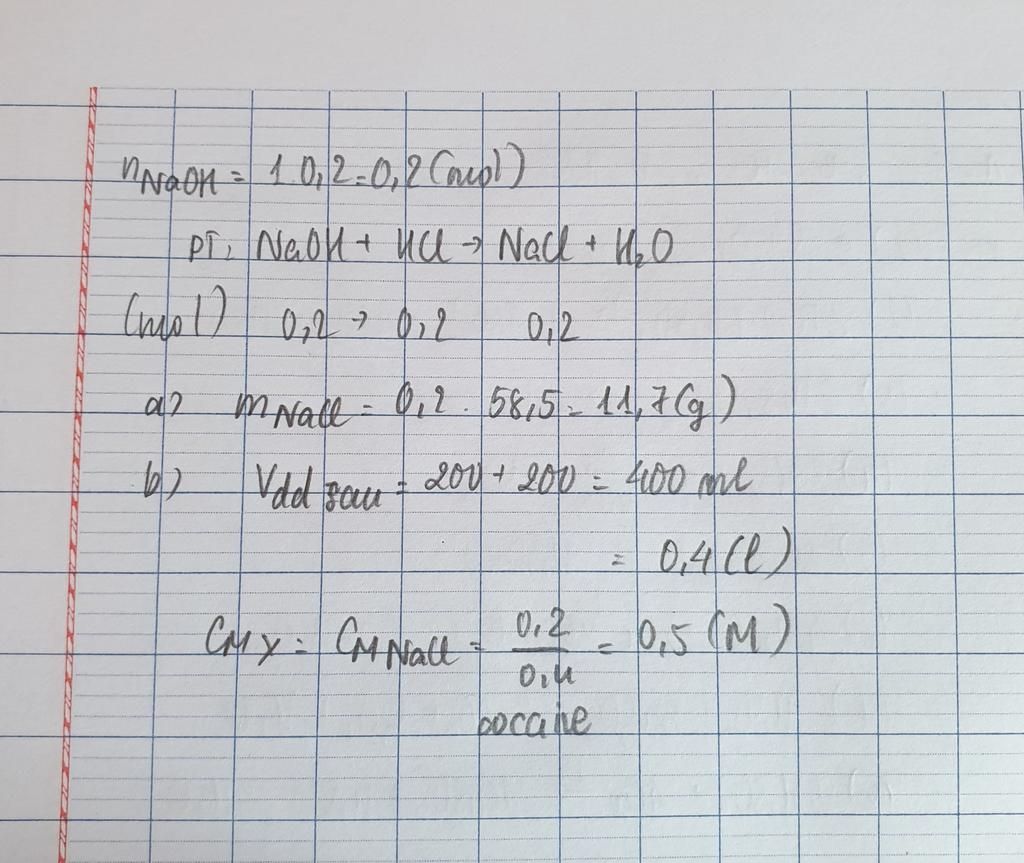 nNaOH = 1.0,2=0,2(mol)
PT: NaOH + HCl → NaCl + H₂O
(mol) 0,2 → 0,2 0,2
a) mNaCl = 0,2 . 58,5 = 11,7(g)
b) Vdd sau = 200 + 200 = 400 ml
= 0,4 (l)
CM Y = CM NaCl = 0,2/0,4 = 0,5 (M)